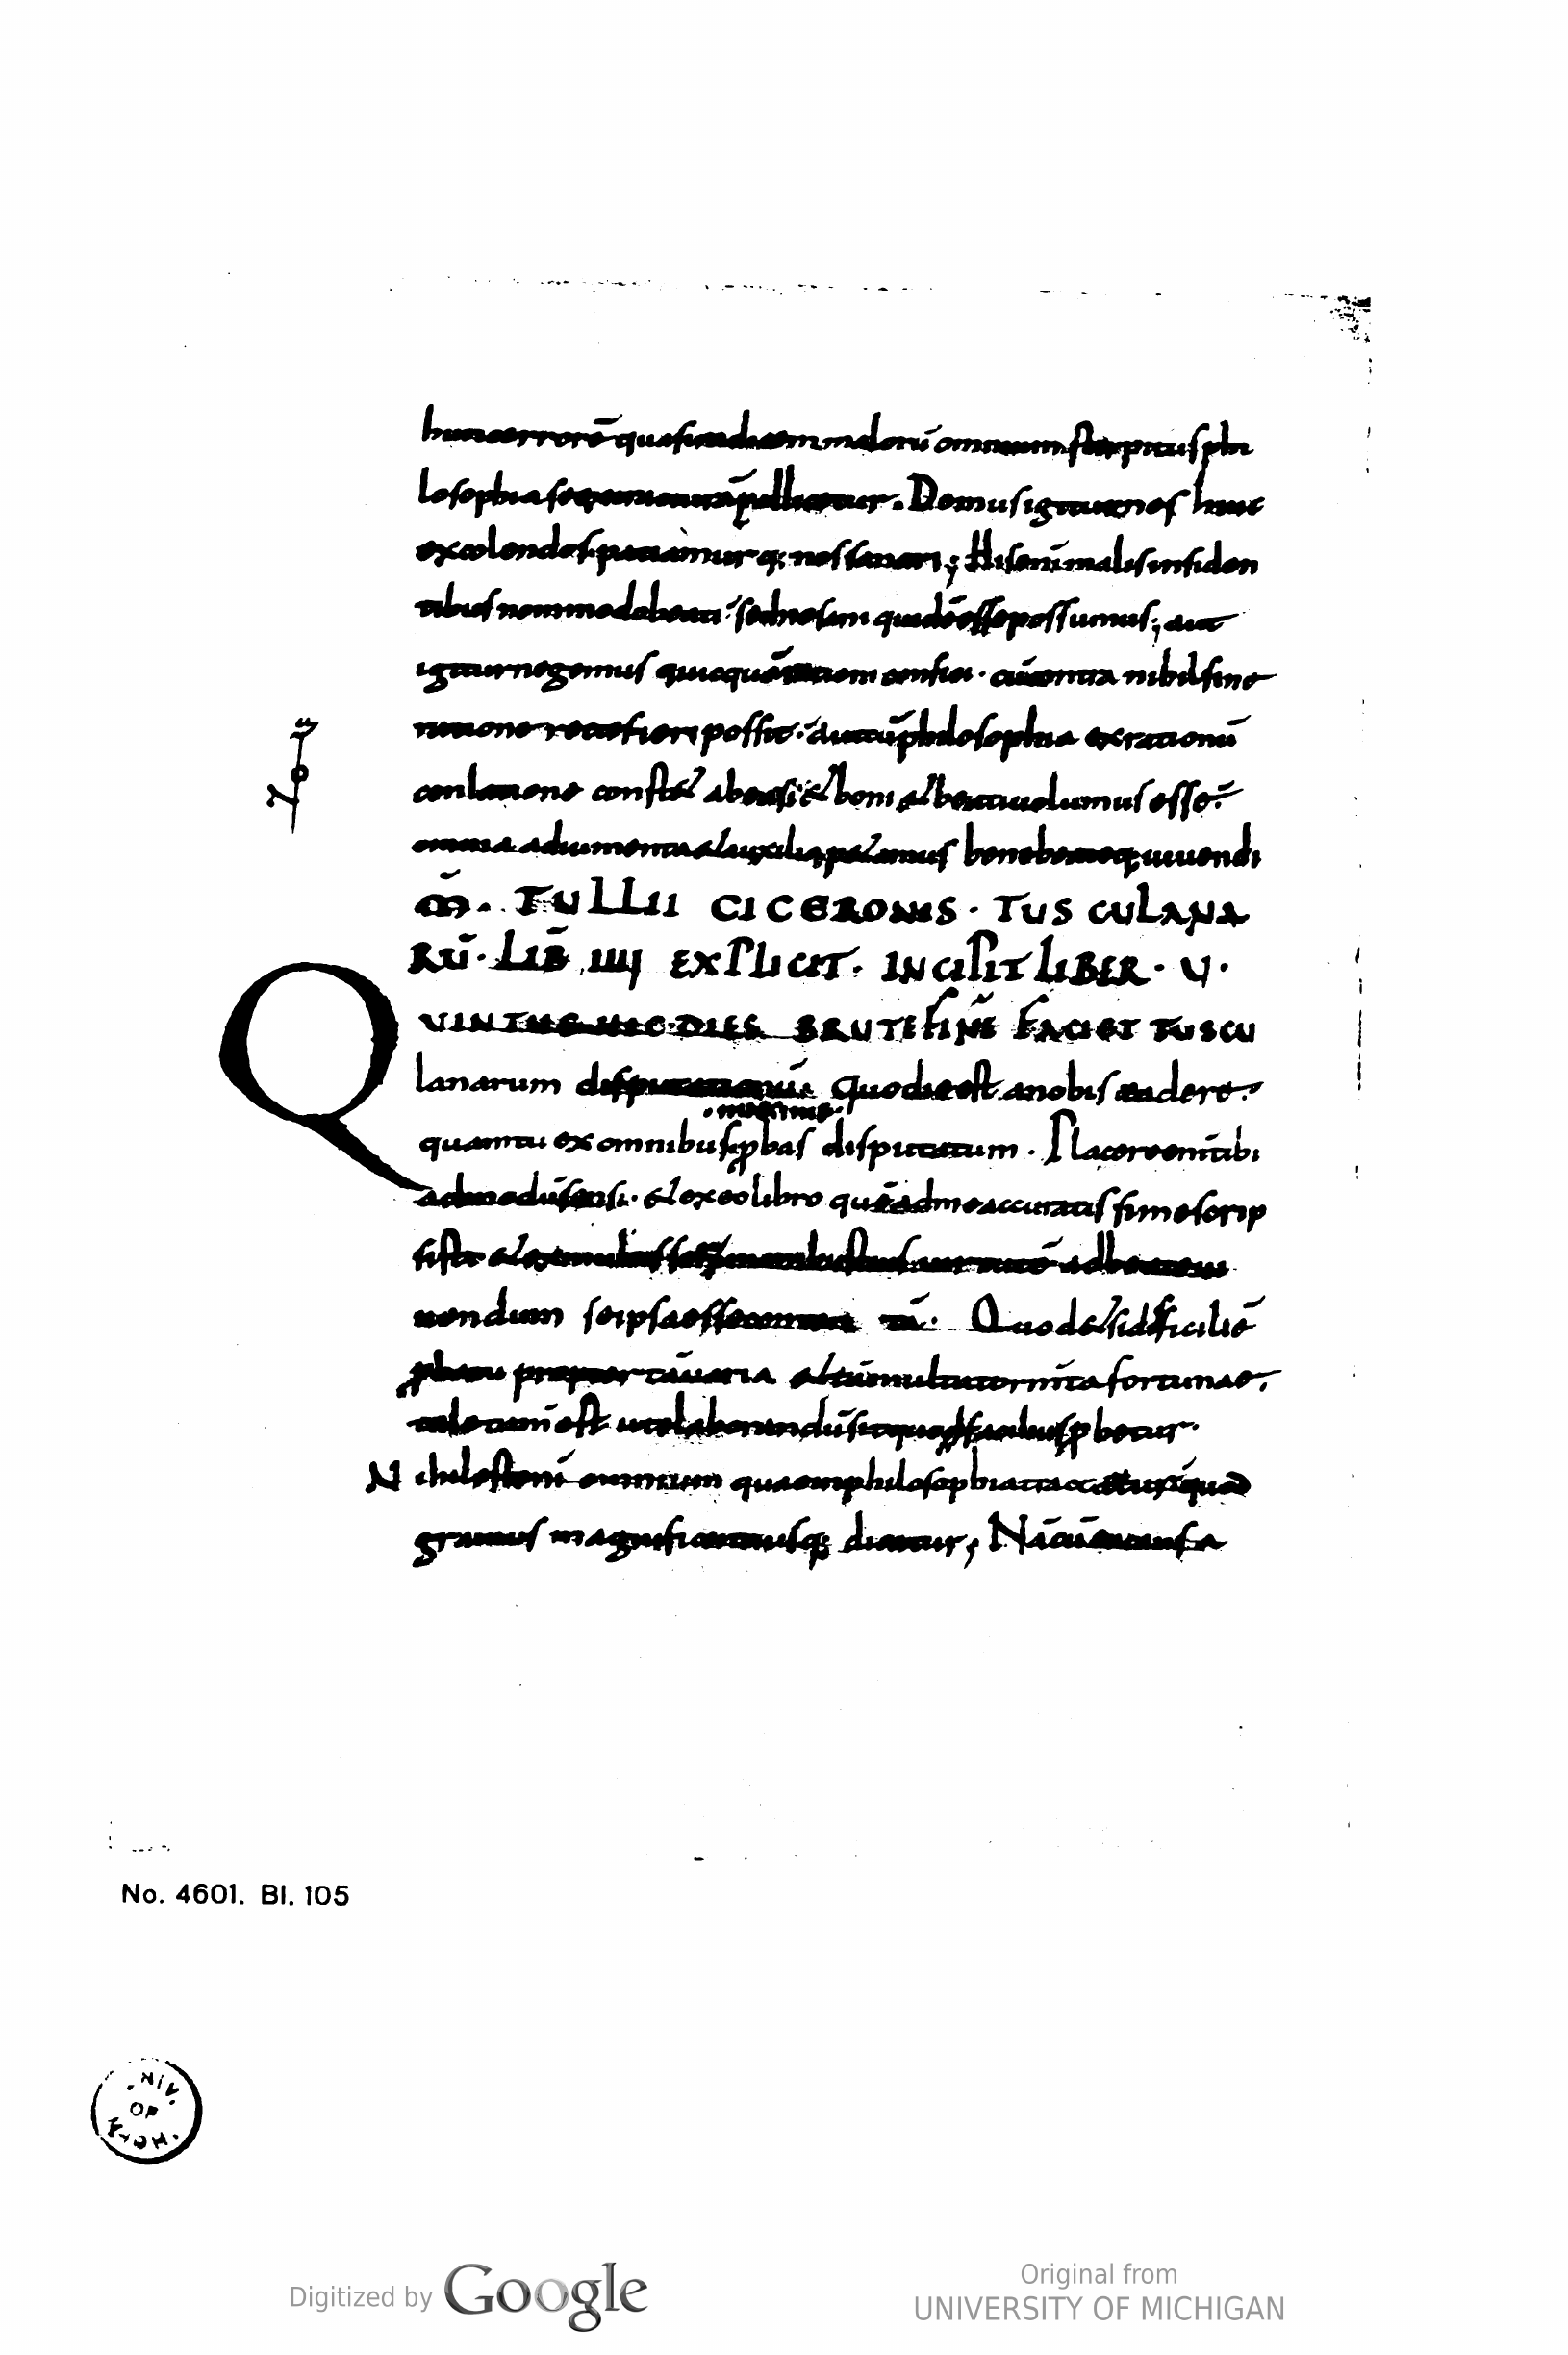 huncerrorē quasiradicem malorū omnium stirpitus phi
losophia seextracturā pollicetur. Demus igitur nos huic
excolendos patiamurq; nos sanari; His enī malis insiden
tibus non modo beati sed ne sani quidē esse possumus; aut
igitur negemus quicquā ratione confici. cū contra nihil sine
ratione recte fieri possit. aut cū philosophia ex rationū
conlatione constet ab ea si & boni & beati uolumus esse.
omnia adiumenta & auxilia petamus bene beateq; uiuendi
M̄. TULLII CICERONIS. TUSCULANA
RŪ. LIB̄ IIII EXPLICIT. INCIPIT LIBER. V.
QVINTUS HIC DIES BRUTE FINĒ FACIET TUSCU
lanarum disputationū. Quo die est a nobis ea dere.
.maxime.
qua m tu ex omnibus pbas disputatum. Placere enī tibi
admodū sensi. & ex eo libro quē ad me accuratissime scrip
sisti & ex multis sermonibus tuis uirtutē ad beate ui
uendum se ipsa esse contentā. Quod & si difficile ē
pbatu propter tā uaria & tā multa tormēta fortunae.
tale tam̄ est ut elaborandū sit quo facilius pbetur.
Nihil est enī omnium quae in philosophia tractatur quod
grauius magnificentiusq; dicatur; Nā cū ea causa
No. 4601. Bl. 105
UNIV. OF MICH.
Digitized by Google
Original from
UNIVERSITY OF MICHIGAN